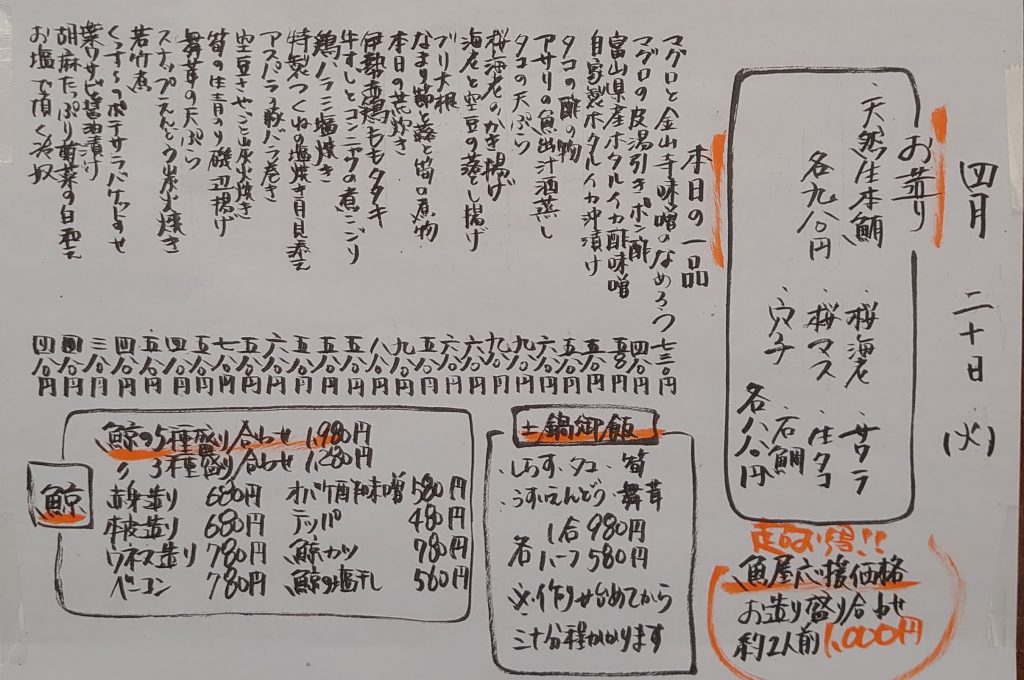 四月二十日(火)
お造り
・天然生本鯛
各九八〇円
・桜海老・サワラ
・桜マス・生タコ
・穴子・石鯛
各八八〇円
超お得!!
魚屋応援価格
お造り盛り合わせ
約2人前1,000円
本日の一品
マグロと金山寺味噌のなめろう 七三〇円
マグロの皮湯引きポン酢 四八〇円
富山県産ホタルイカ酢味噌 五八〇円
自家製ホタルイカ沖漬け 五八〇円
タコの酢の物 五八〇円
アサリの魚出汁酒蒸し 六八〇円
タコの天ぷら 九八〇円
桜海老のかき揚げ 九八〇円
海老と空豆の蒸し揚げ 六八〇円
ブリ大根 六八〇円
なまり節と蕗と筍の煮物 九八〇円
本日の荒炊き 五八〇円
伊勢赤鶏ももタタキ 八八〇円
牛すじとコンニャクの煮こごり 五八〇円
鶏ハラミ塩焼き 五八〇円
特製つくねの塩焼き月見添え 五八〇円
アスパラ豚バラ巻き 六八〇円
空豆さやごと炭火焼き 五八〇円
筍の生青のり磯辺揚げ 七八〇円
舞茸の天ぷら 五八〇円
スナップえんどう炭火焼き 四八〇円
若竹煮 五八〇円
くっすんのポテサラバケットのせ 四八〇円
葉ワサビ醤油漬け 三八〇円
胡麻たっぷり菊菜の白和え 四八〇円
お塩で頂く冷奴 四八〇円
土鍋御飯
・しらす・タコ・筍
・うすいえんどう・舞茸
各 1合980円
ハーフ580円
※作り始めてから
三十分程かかります
鯨
鯨の5種盛り合わせ 1,980円
〃 3種盛り合わせ 1,280円
赤身造り 680円 オバケ酢味噌 580円
本皮造り 680円 テッパ 480円
ウネス造り 780円 鯨カツ 780円
ベーコン 780円 鯨の塩干し 560円